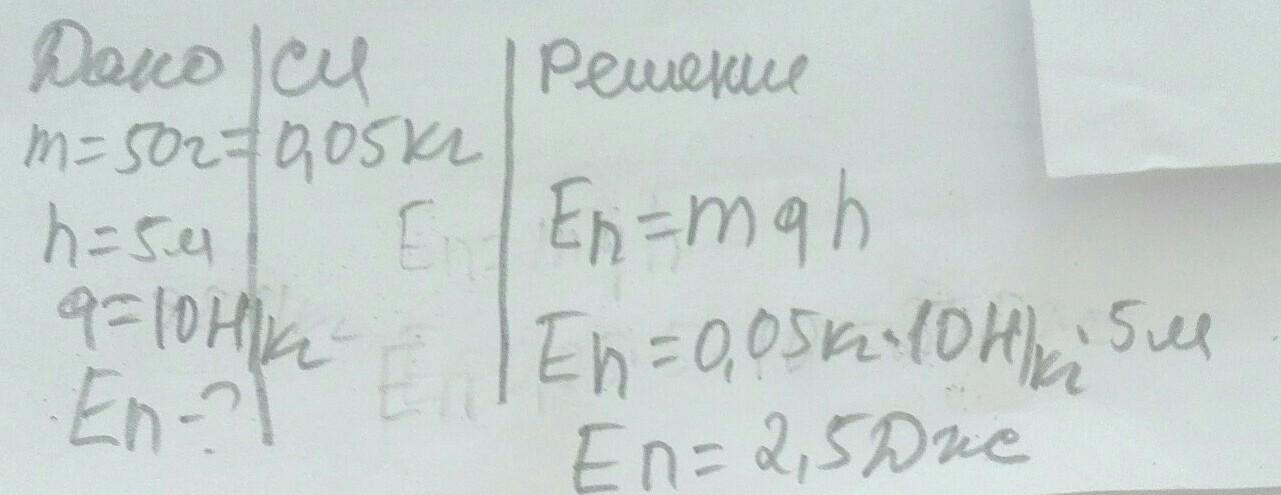 Дано СИ Решение
m=50г=0,05кг
h=5м Eп=mgh
g=10Н/кг Eп=0,05кг·10Н/кг·5м
Eп-? Eп=2,5Дже